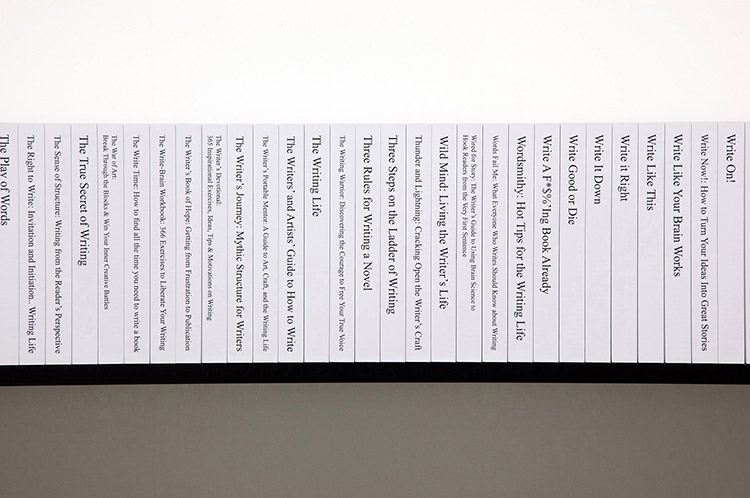 The Play of Words
The Right to Write: Invitation and Initiation.. Writing Life
The Sense of Structure: Writing from the Reader's Perspective
The True Secret of Writing
The War of Art:
Break Through the Blocks & Win Your Inner Creative Battles
The Write Time: How to find all the time you need to write a book
The Write-Brain Workbook: 366 Exercises to Liberate Your Writing
The Writer's Book of Hope: Getting from Frustration to Publication
The Writer's Devotional:
365 Inspirational Exercises, Ideas, Tips & Motivations on Writing
The Writer's Journey: Mythic Structure for Writers
The Writer's Portable Mentor: A Guide to Art, Craft, and the Writing Life
The Writers' and Artists' Guide to How to Write
The Writing Life
The Writing Warrior: Discovering the Courage to Free Your True Voice
Three Rules for Writing a Novel
Three Steps on the Ladder of Writing
Thunder and Lightning: Cracking Open the Writer's Craft
Wild Mind: Living the Writer's Life
Wired for Story: The Writer's Guide to Using Brain Science to
Hook Readers from the Very First Sentence
Words Fail Me: What Everyone Who Writes Should Know about Writing
Wordsmithy: Hot Tips for the Writing Life
Write A F*$%'Ing Book Already
Write Good or Die
Write It Down
Write it Right
Write Like This
Write Like Your Brain Works
Write Now!: How to Turn Your Ideas Into Great Stories
Write On!